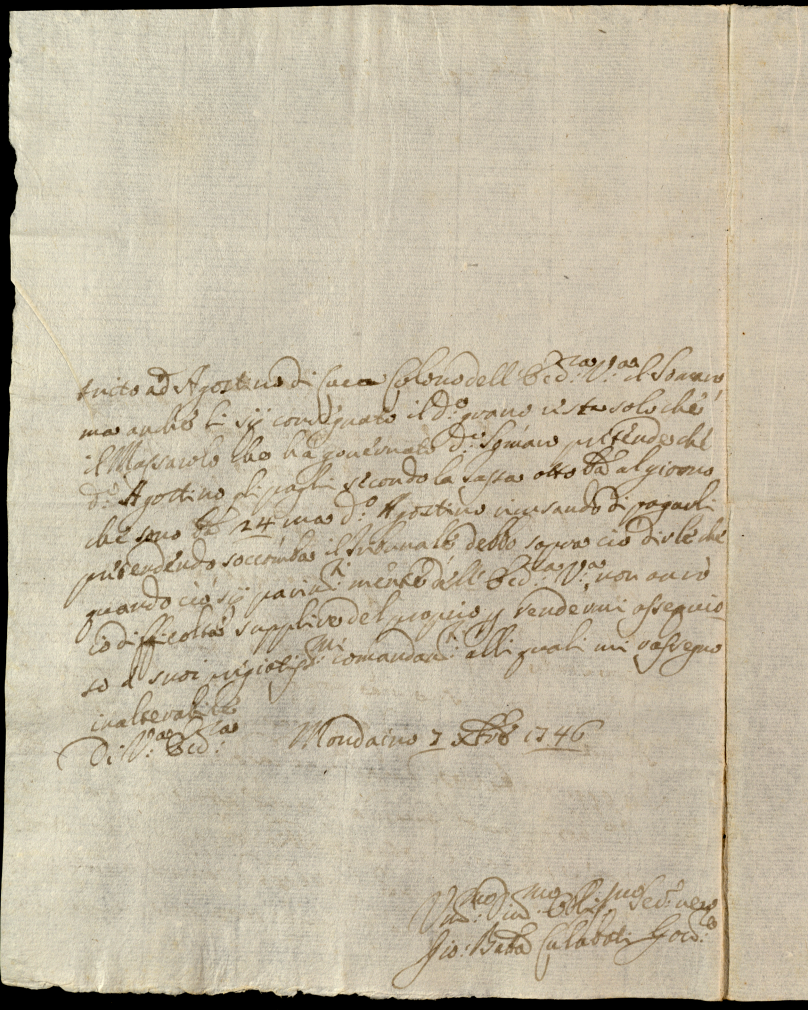 tuito ad Agostino di Colono dell' Ecc:za V:a il Somaro
ma anche li sij consegnato il d:o grano resta solo che
il Massarolo che ha governato d:o Somaro pretende che
d:o Agostino gli paghi secondo la tassa otto b: al giorno
che sono b: 24 ma d:o Agostino ricusando di pagarli
pretendendo soccomba il Tribunale debbo sopra ciò dirle che
quando ciò sij mente dell' Ecc:za V:a non avrò
io difficoltà supplire del proprio p rendermi ossequio-
so a suoi pregiatis:mi comandam:ti alli quali mi rassegno
inalterabile
Di V:a Ecc:za Mondaino 7 Xbre 1746
Um:mo Obblig:mo Ser:e vero
Gio: Batta Gov:re